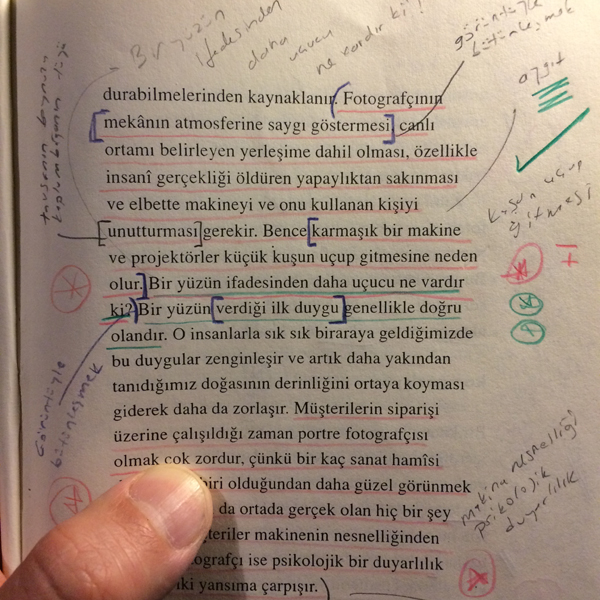 Bir yüzün
ifadesinden
daha
uçucu
ne vardır ki!
görüntüyle
bütünleşmek
aygıt
durabilmelerinden kaynaklanır. Fotografçının
mekânın atmosferine saygı göstermesi, canlı
ortamı belirleyen yerleşime dahil olması, özellikle
insanî gerçekliği öldüren yapaylıktan sakınması
ve elbette makineyi ve onu kullanan kişiyi
unutturması gerekir. Bence karmaşık bir makine
ve projektörler küçük kuşun uçup gitmesine neden
olur. Bir yüzün ifadesinden daha uçucu ne vardır
ki? Bir yüzün verdiği ilk duygu genellikle doğru
olandır. O insanlarla sık sık biraraya geldiğimizde
bu duygular zenginleşir ve artık daha yakından
tanıdığımız doğasının derinliğini ortaya koyması
giderek daha da zorlaşır. Müşterilerin siparişi
üzerine çalışıldığı zaman portre fotografçısı
olmak çok zordur, çünkü bir kaç sanat hamîsi
biri olduğundan daha güzel görünmek
da ortada gerçek olan hiç bir şey
teriler makinenin nesnelliğinden
ografçı ise psikolojik bir duyarlılık
iki yansıma çarpışır.)
kuşun uçup
gitmesi
görüntüyle
bütünleşmek
makina nesnelliği
psikolojik
duyarlılık